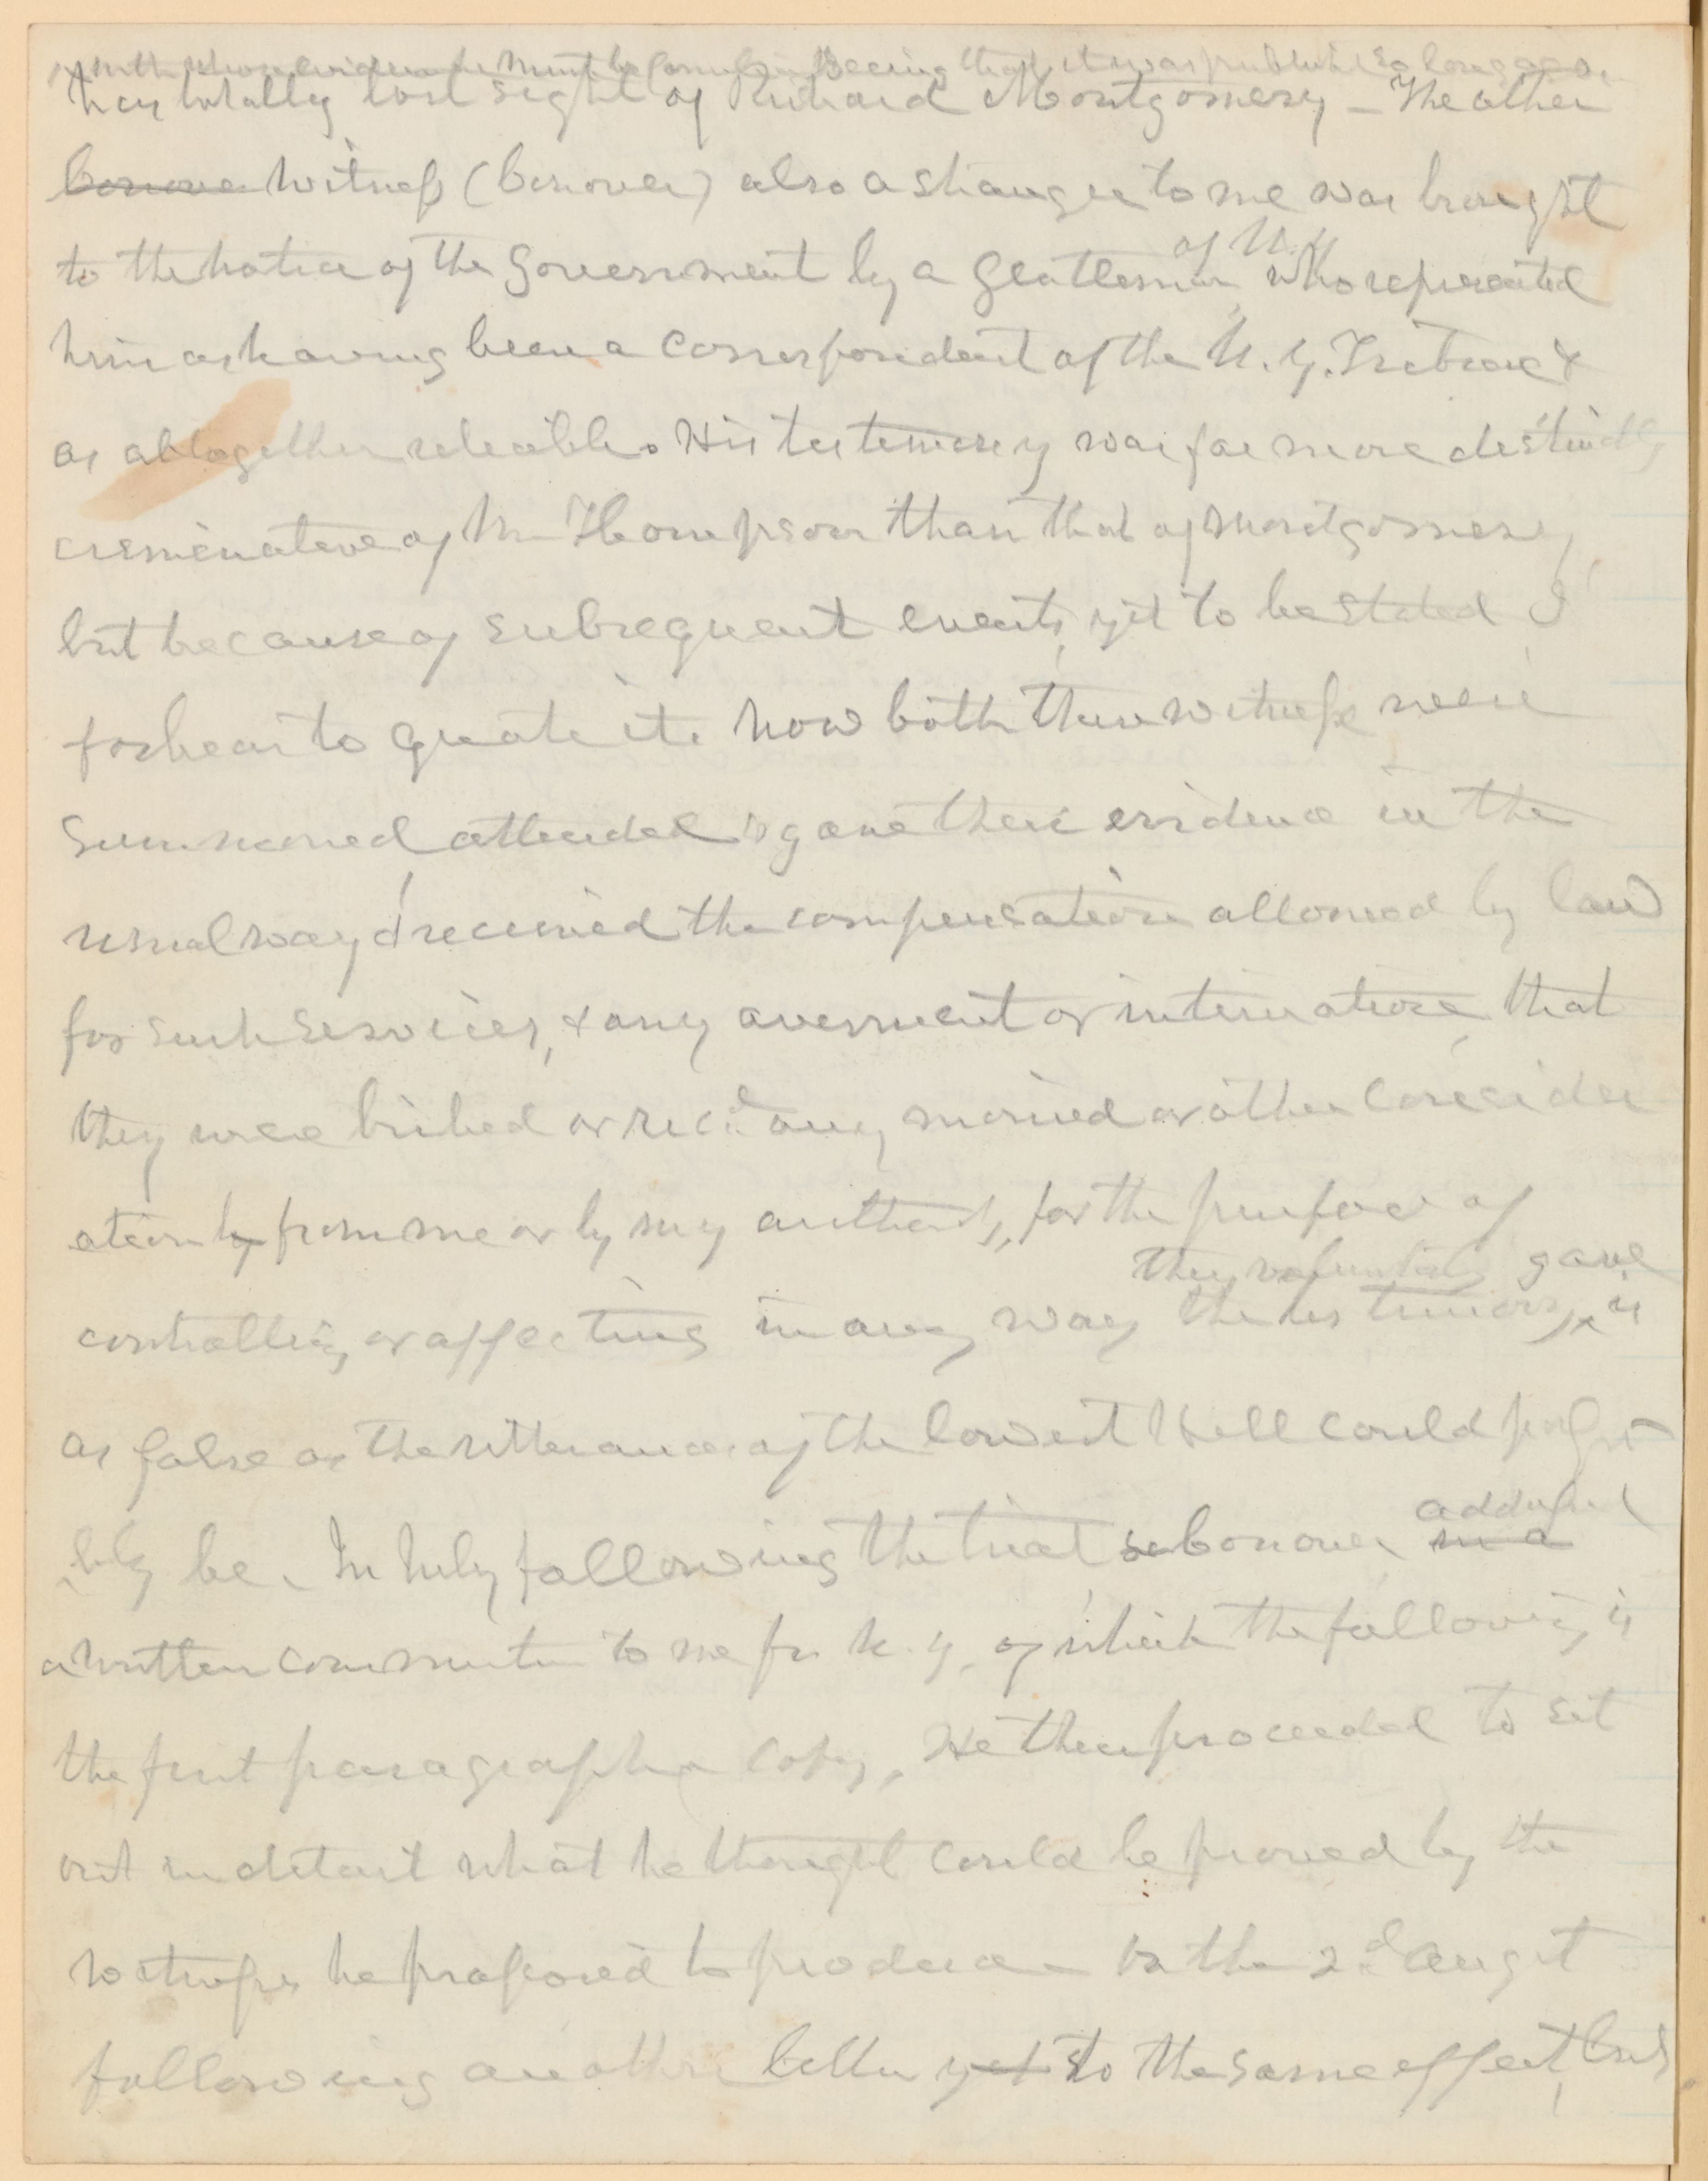 with whose evidence he must be familiar Seeing that it was published so long ago.
they totally lost sight of Richard Montgomery – The other
Conover witness (Conover) also a stranger to me was brought
to the notice of the Government by a gentleman of N.Y. who represented
him as having been a correspondent of the N.Y. Tribune &
as altogether reliable. His testimony was far more distinctly
criminative of Mr Thompson than that of Montgomery,
but because of subsequent events, yet to be stated, I
forbear to quote it. Now both these witnesses were
summoned attended & gave their evidence in the
usual way & received the compensation allowed by law
for such services, & any averment or intimation, that
they were bribed or recd any monied or other consider
ation by from me or by my authority, for the purpose of
controlling or affecting in any way the testimony they voluntarily gave is
as false as the utterances of the lowest Hell could possi
bly be. In July following the trial Conover addressed in a
a written commun to me fr N.Y. of which the following is
the first paragraph copy, He then proceeded to set
out in detail what he thought could be proved by the
witnesses he proposed to produce – On the 2d Augst
following another letter yet to the same effect, but